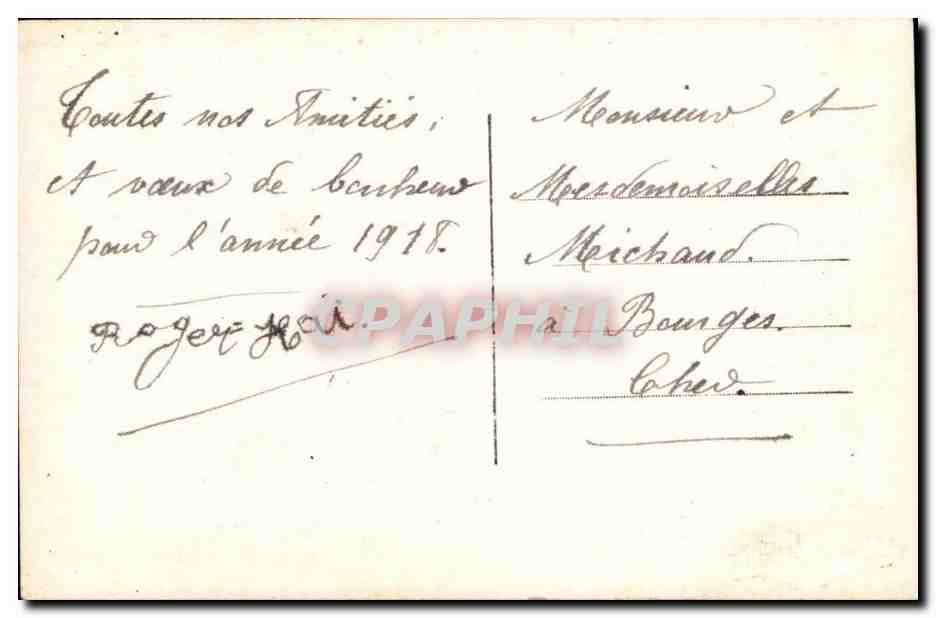 Toutes nos Amitiés,
et vœux de bonheur
pour l'année 1918.
Roger
Monsieur et
Mesdemoiselles
Michaud.
à Bourges.
Cher.
CPAPHIL